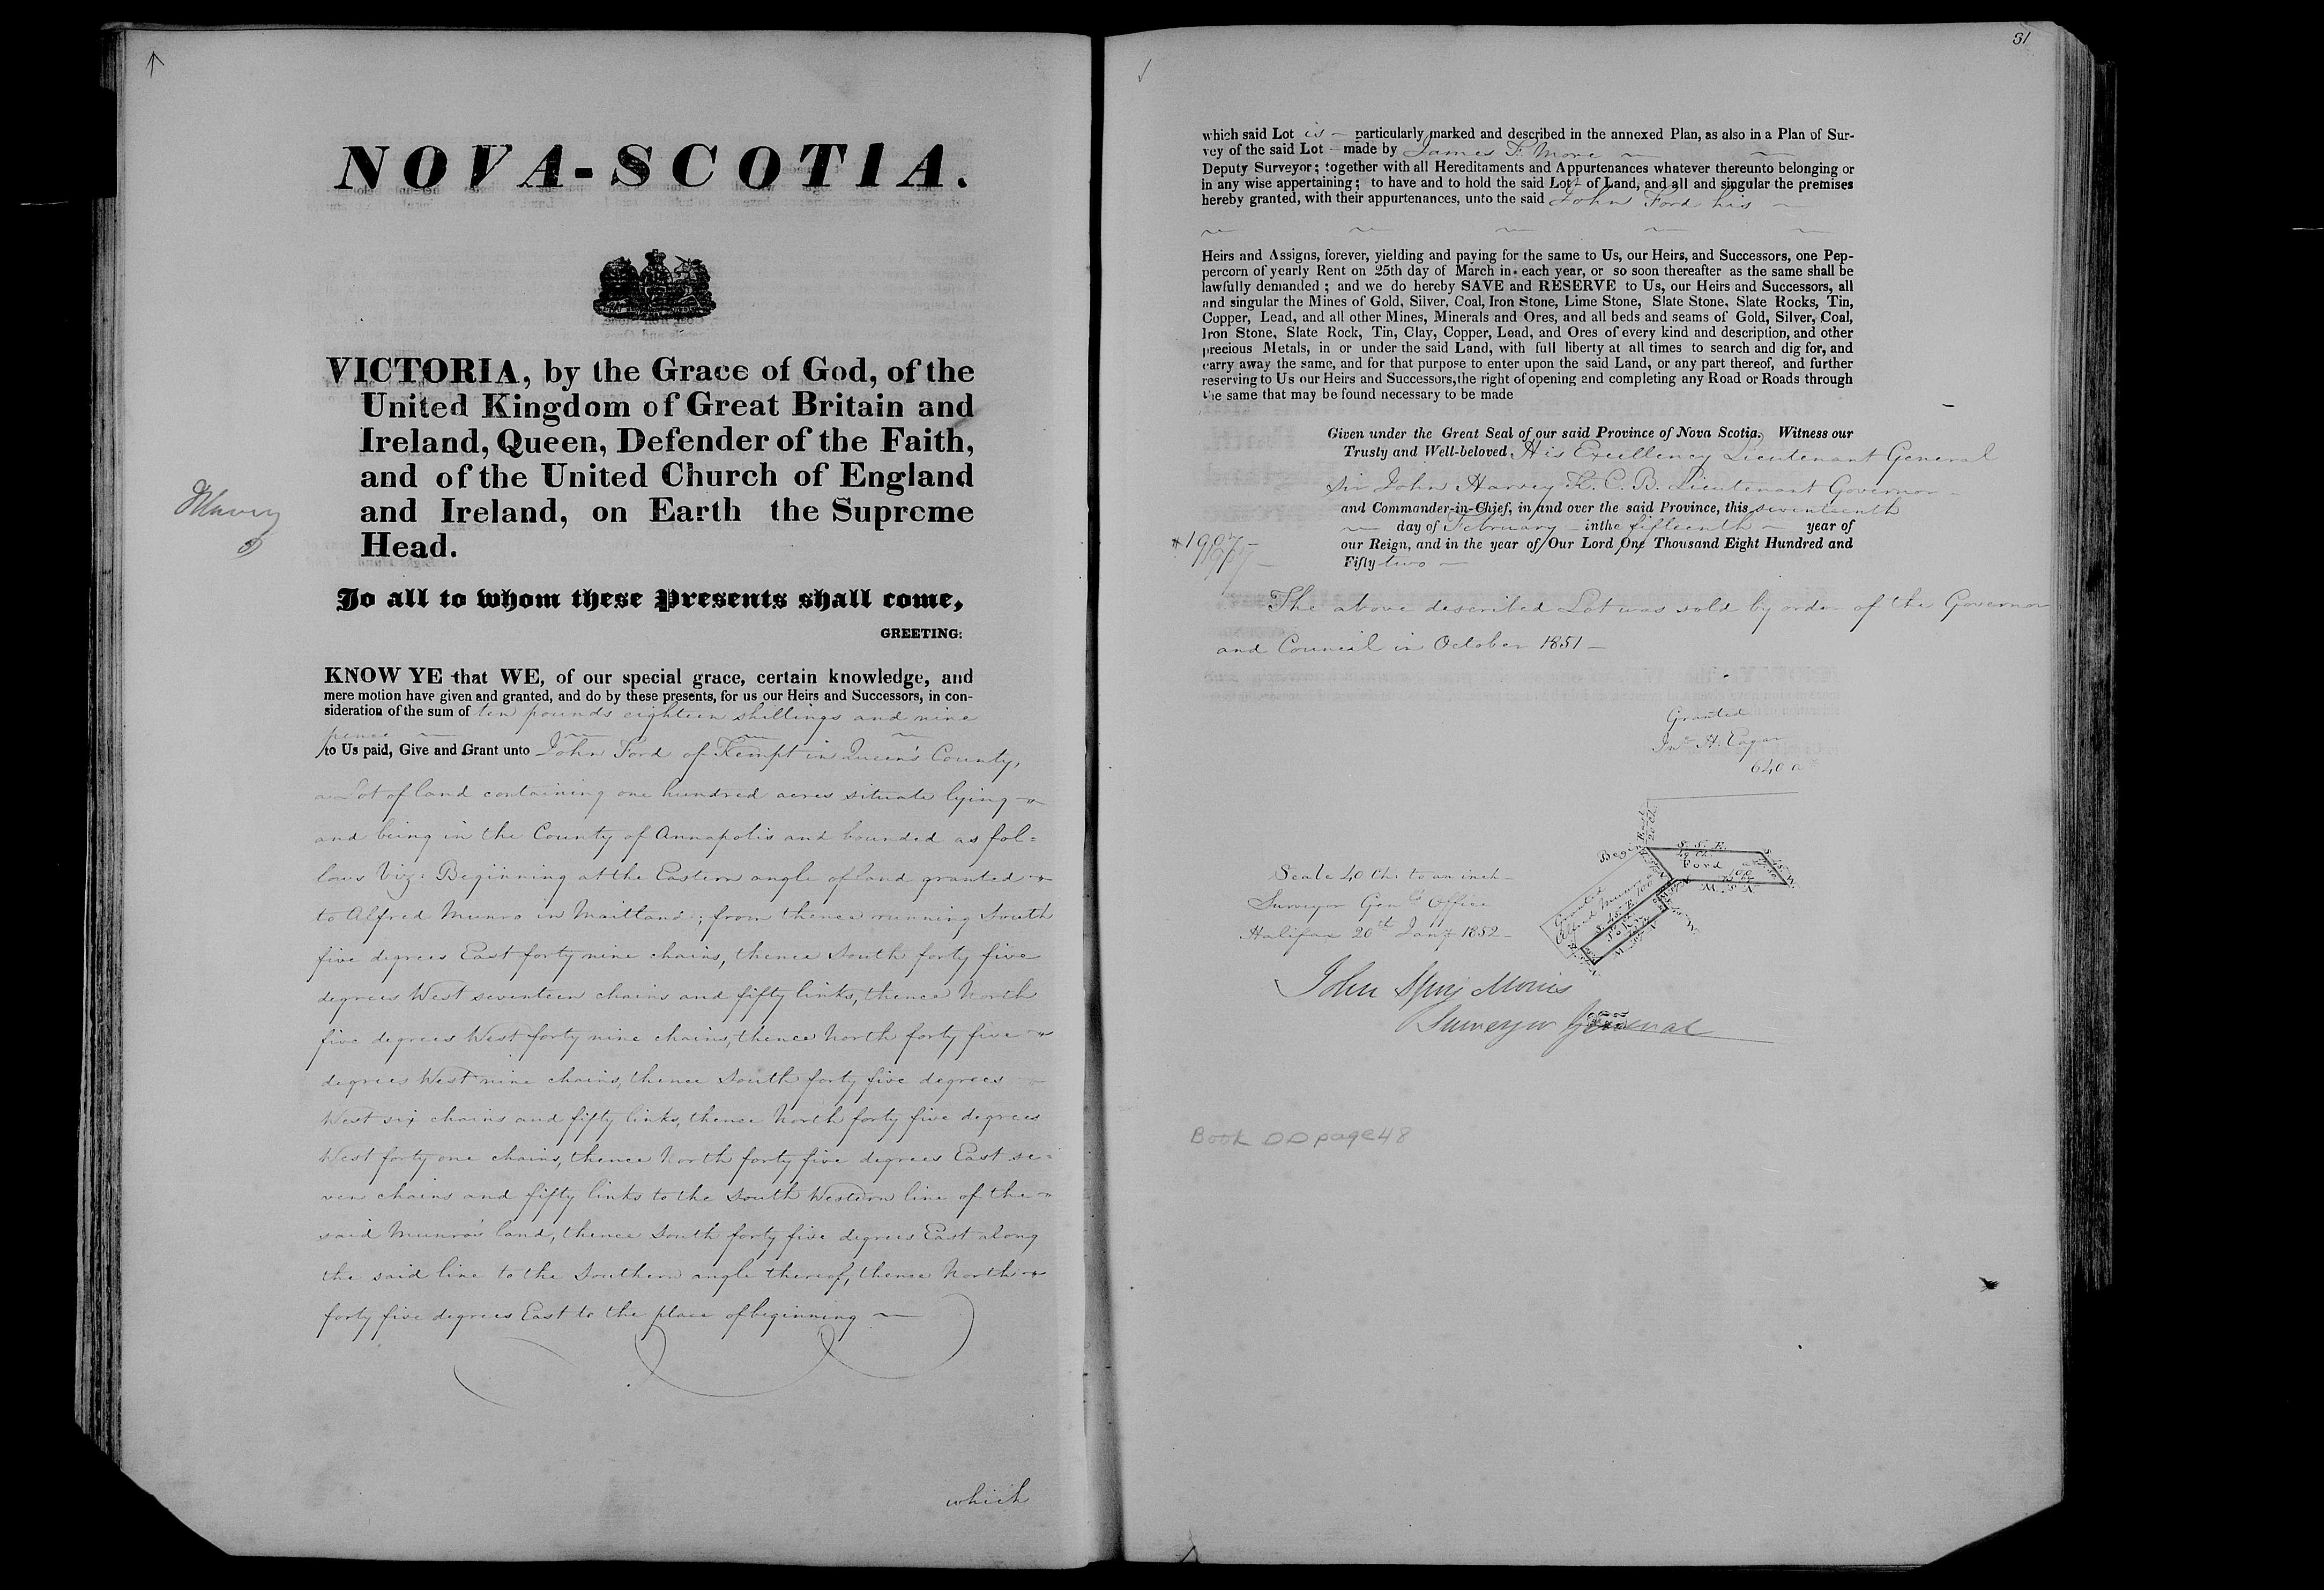 NOVA-SCOTIA.
VICTORIA, by the Grace of God, of the
United Kingdom of Great Britain and
Ireland, Queen, Defender of the Faith,
and of the United Church of England
and Ireland, on Earth the Supreme
Head.
To all to whom these Presents shall come,
GREETING:
KNOW YE that WE, of our special grace, certain knowledge, and
mere motion have given and granted, and do by these presents, for us our Heirs and Successors, in con-
sideration of the sum of ten pounds eighteen shillings and nine
pence
to Us paid, Give and Grant unto John Ford of Kempt in Queen's County,
a Lot of land containing one hundred acres situate lying
and being in the County of Annapolis and bounded as fol=
lows Viz: Beginning at the Eastern angle of land granted
to Alfred Munro in Maitland; from thence running South
five degrees East forty nine chains, thence South forty five
degrees West seventeen chains and fifty links, thence North
five degrees West forty nine chains, thence North forty five
degrees West nine chains, thence South forty five degrees
West six chains and fifty links, thence North forty five degrees
West forty one chains, thence North forty five degrees East se=
ven chains and fifty links to the South Western line of the
said Munro's land, thence South forty five degrees East along
the said line to the Southern angle thereof, thence North
forty five degrees East to the place of beginning
which
31
which said Lot is particularly marked and described in the annexed Plan, as also in a Plan of Sur-
vey of the said Lot made by James F. More
Deputy Surveyor; together with all Hereditaments and Appurtenances whatever thereunto belonging or
in any wise appertaining; to have and to hold the said Lot of Land, and all and singular the premises
hereby granted, with their appurtenances, unto the said John Ford his
Heirs and Assigns, forever, yielding and paying for the same to Us, our Heirs, and Successors, one Pep-
percorn of yearly Rent on 25th day of March in each year, or so soon thereafter as the same shall be
lawfully demanded; and we do hereby SAVE and RESERVE to Us, our Heirs and Successors, all
and singular the Mines of Gold, Silver, Coal, Iron Stone, Lime Stone, Slate Stone, Slate Rocks, Tin,
Copper, Lead, and all other Mines, Minerals and Ores, and all beds and seams of Gold, Silver, Coal,
Iron Stone, Slate Rock, Tin, Clay, Copper, Lead, and Ores of every kind and description, and other
precious Metals, in or under the said Land, with full liberty at all times to search and dig for, and
carry away the same, and for that purpose to enter upon the said Land, or any part thereof, and further
reserving to Us our Heirs and Successors, the right of opening and completing any Road or Roads through
the same that may be found necessary to be made
Given under the Great Seal of our said Province of Nova Scotia. Witness our
Trusty and Well-beloved His Excellency Lieutenant General
Sir John Harvey K. C. B. Lieutenant Governor
and Commander-in-Chief, in and over the said Province, this seventeenth
day of February in the fifteenth year of
our Reign, and in the year of Our Lord One Thousand Eight Hundred and
Fifty two
The above described Lot was sold by order of the Governor
and Council in October 1851
Granted
Jno H. Eagar
640 a
Begin
East
20 Ch.
S. 5. E.
49 Ch.
Ford
100
Granted
Alfred Munro
100 a
Scale 40 Ch: to an inch
Surveyor Genls Office
Halifax 20th Jany 1852
John Spry Morris
Surveyor General
Book DD page 48